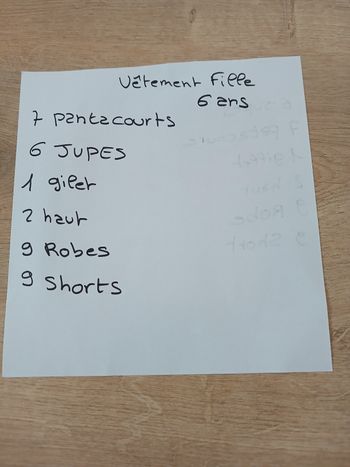 Vêtement Fille
6 ans
7 pantacourts
6 JUPES
1 gilet
2 haut
9 Robes
9 Shorts